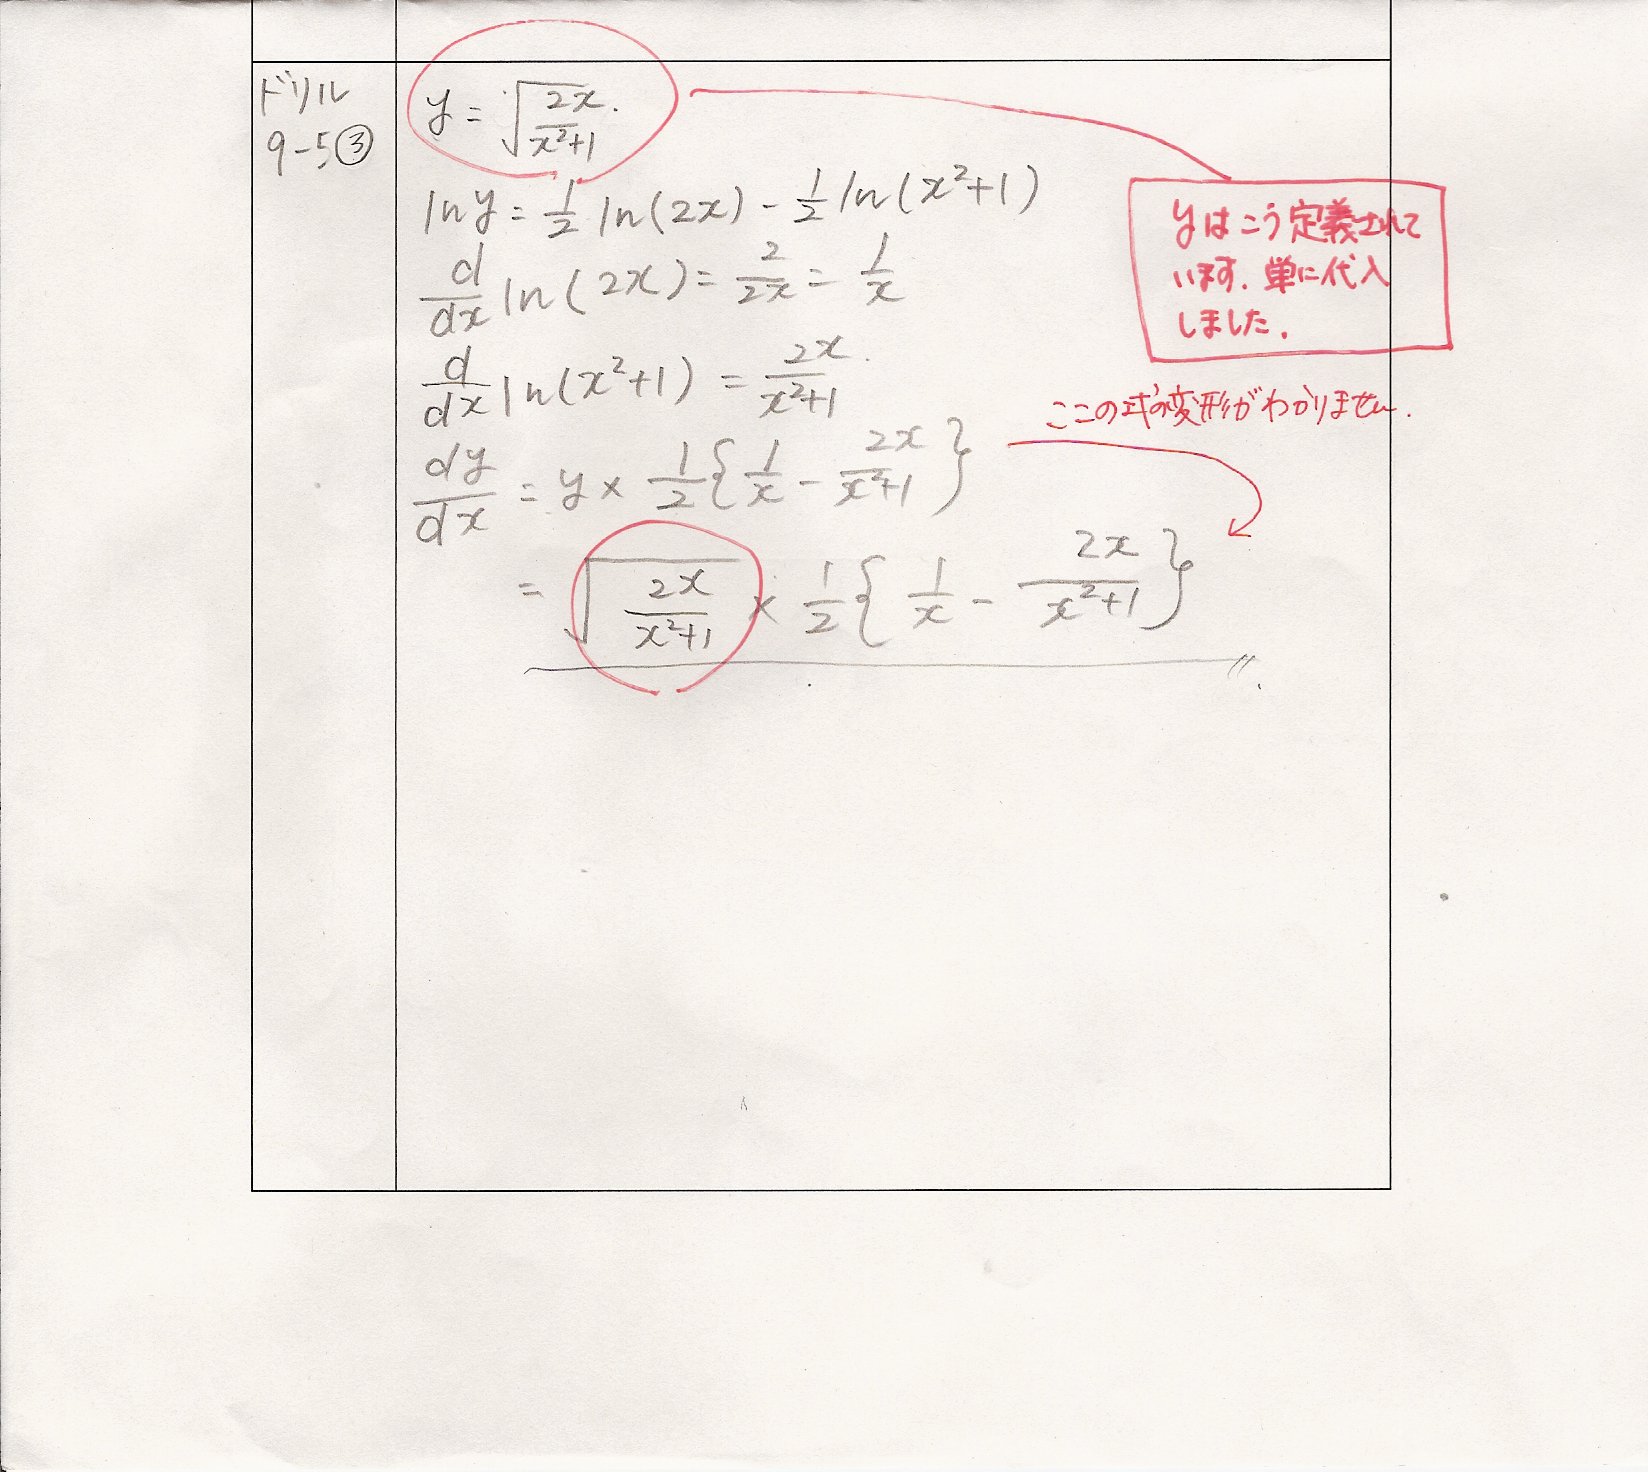 ドリル
9-5③
y = √(2x/(x²+1)).
ln y = 1/2 ln(2x) - 1/2 ln(x²+1)
d/dx ln(2x) = 2/2x = 1/x
d/dx ln(x²+1) = 2x/(x²+1).
dy/dx = y × 1/2 {1/x - 2x/(x²+1)}
= √(2x/(x²+1)) × 1/2 {1/x - 2x/(x²+1)}
yはこう定義されて
います. 単に代入
しました.
ここの式の変形がわかりません.